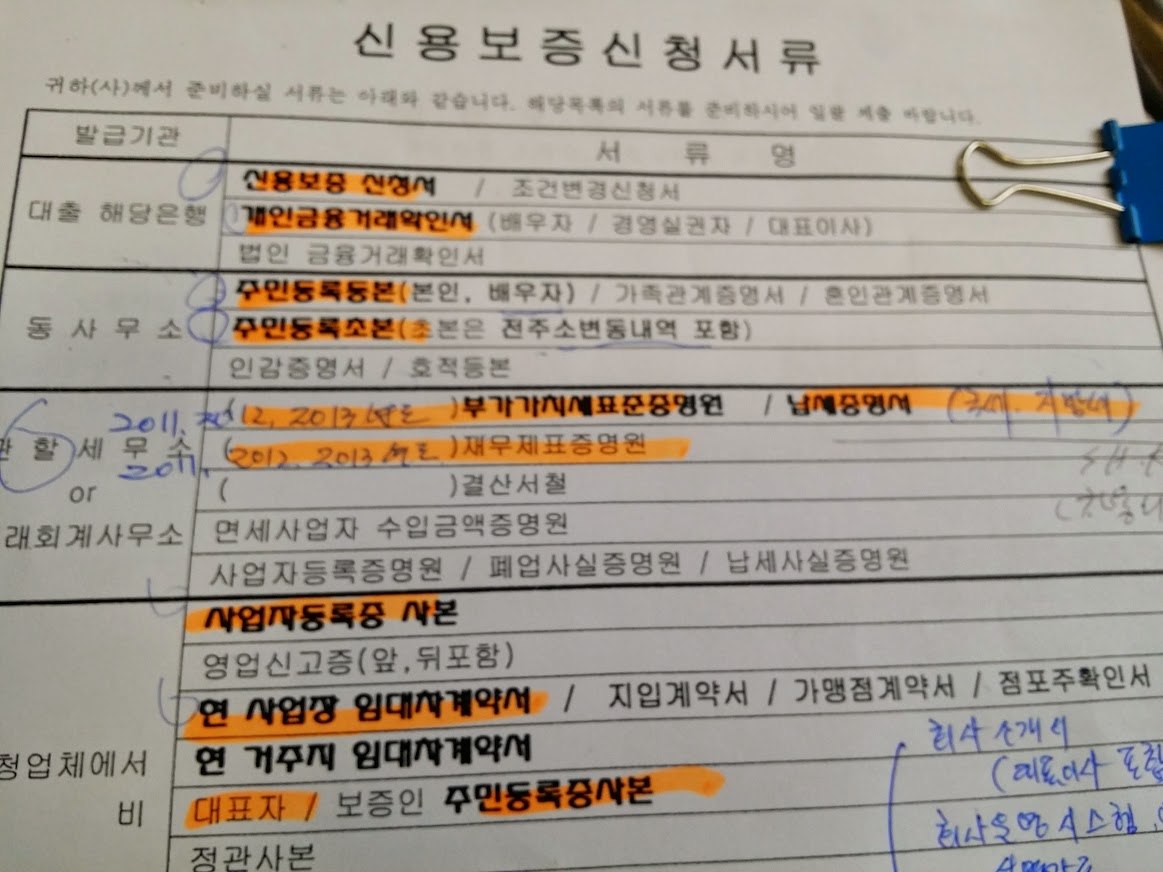 신용보증신청서류
귀하(사)께서 준비하실 서류는 아래와 같습니다. 해당목록의 서류를 준비하시어 일괄 제출 바랍니다.
발급기관 서 류 명
대출 해당은행
신용보증 신청서 / 조건변경신청서
개인금융거래확인서 (배우자 / 경영실권자 / 대표이사)
법인 금융거래확인서
동 사 무 소
주민등록등본(본인, 배우자) / 가족관계증명서 / 혼인관계증명서
주민등록초본(초본은 전주소변동내역 포함)
인감증명서 / 호적등본
관 할 세 무 소
or
래회계사무소
2011. (12, 2013 년도 )부가가치세표준증명원 / 납세증명서 (국세. 지방세)
2011. (2012. 2013 년도 )재무제표증명원
( )결산서철
면세사업자 수입금액증명원
사업자등록증명원 / 폐업사실증명원 / 납세사실증명원
청업체에서
비
사업자등록증 사본
영업신고증(앞,뒤포함)
현 사업장 임대차계약서 / 지입계약서 / 가맹점계약서 / 점포주확인서
현 거주지 임대차계약서
대표자 / 보증인 주민등록증사본
정관사본
회사소개서
(대표이사 포함
회사운영시스템